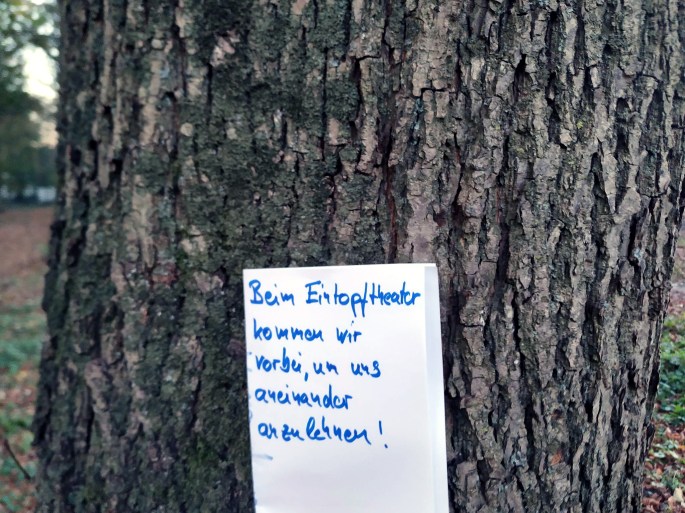 Beim Eintopftheater
kommen wir
vorbei, um uns
aneinander
anzulehnen!